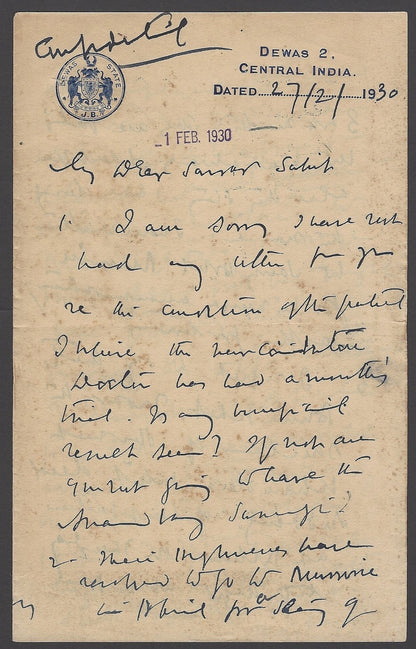 Confidential
DEWAS STATE
J.B.
DEWAS 2,
CENTRAL INDIA.
DATED 27/2/ 1930
1 FEB. 1930
My Dear Sardar Sahib
1. I am sorry I have not
had any letter from you
re the condition of the patient
I believe the new
Doctor has had a month's
trial. Is any beneficial
result seen? If not are
you not going to have the
2. Their Highnesses have
resolved to go to Mussoorie
in April for a stay of